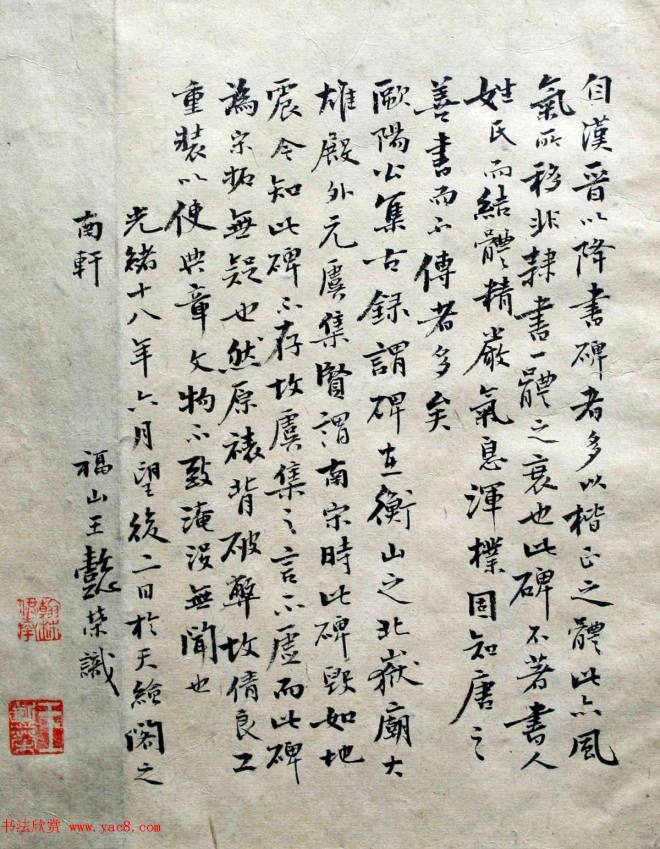 自漢晉以降書碑者多以楷正之體此亦風
氣所移非隸書一體之衰也此碑不著書人
姓氏而結體精嚴氣息渾樸固知唐之
善書而不傳者多矣
歐陽公集古録謂碑在衡山之北嶽廟大
雄殿外元虞集賢謂南宗時此碑毀如地
震今知此碑不存故虞集之言不虛而此碑
為宗拓無疑也然原裱背破獘故倩良工
重裝以使典章文物不致淹沒無聞也
光緒十八年六月望後二日於天繪閣之
南軒
福山王懿榮識
翰林
王懿榮
书法欣赏 www.yac8.com